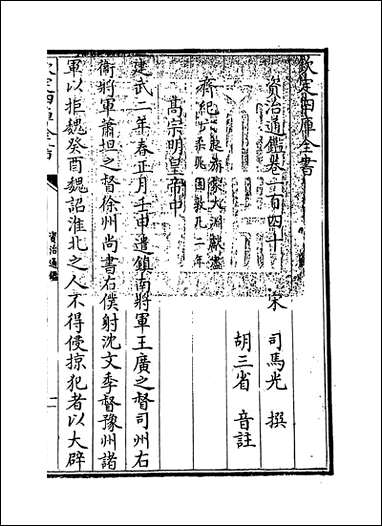 欽定四庫全書
資治通鑑卷一百四十
宋 司馬光 撰
胡三省 音註
齊紀六起旃蒙大淵獻盡柔兆困敦凡二年
高宗明皇帝中
建武二年春正月壬申遣鎮南將軍王廣之督司州右
衛將軍蕭坦之督徐州尚書右僕射沈文季督豫州諸
軍以拒魏癸酉魏詔淮北之人不得侵掠犯者以大辟
欽定四庫全書
資治通鑑